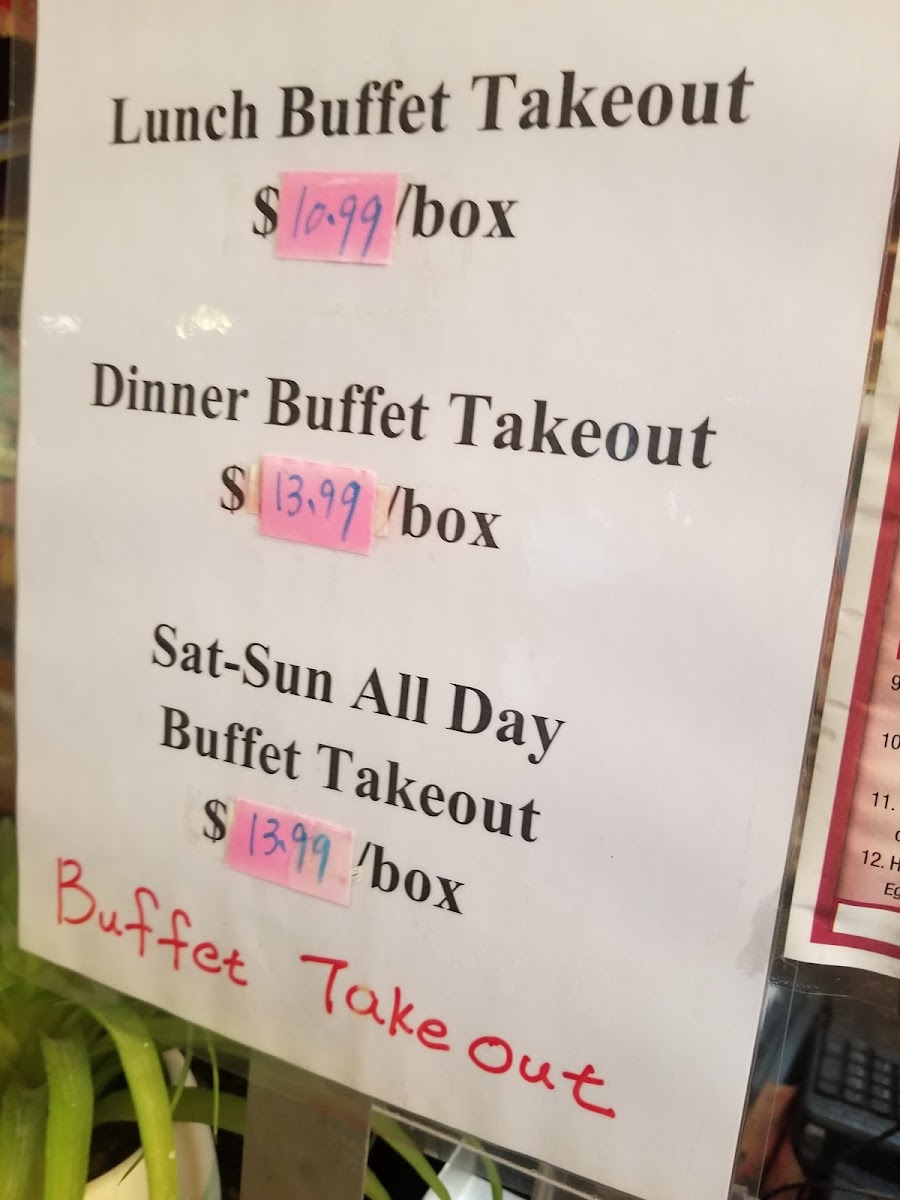 Lunch Buffet Takeout
$10.99/box
Dinner Buffet Takeout
$13.99/box
Sat-Sun All Day
Buffet Takeout
$13.99/box
Buffet Take out
10
11.
12. H
Eg